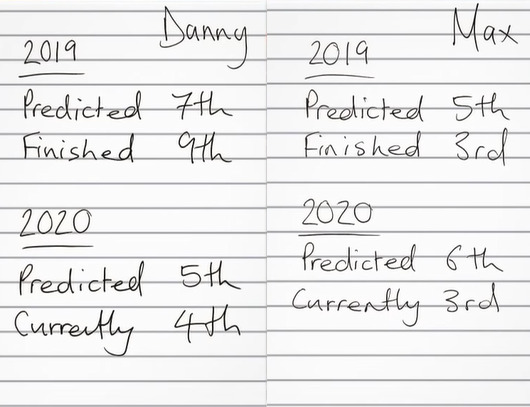 Danny
2019
Predicted 7th
Finished 9th
2020
Predicted 5th
Currently 4th
Max
2019
Predicted 5th
Finished 3rd
2020
Predicted 6th
Currently 3rd